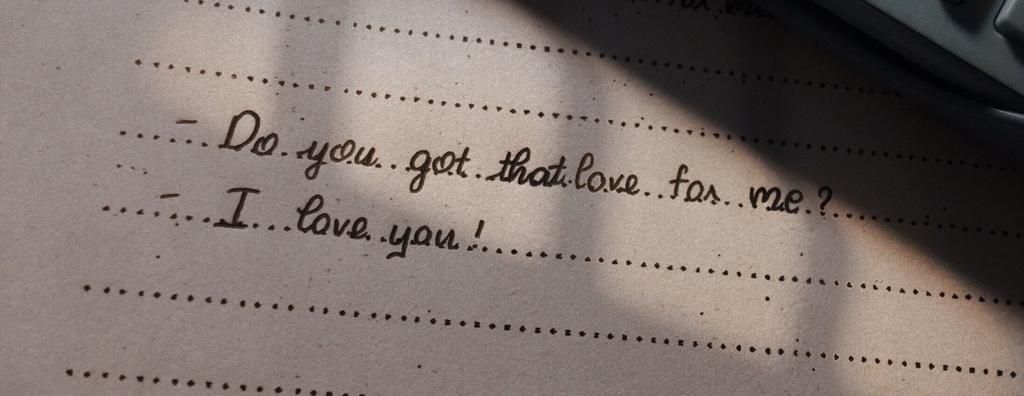 - Do you got that love for me?
- I love you!